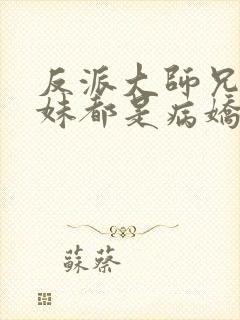 反派大師兄
妹都是病嬌
蘇蔡